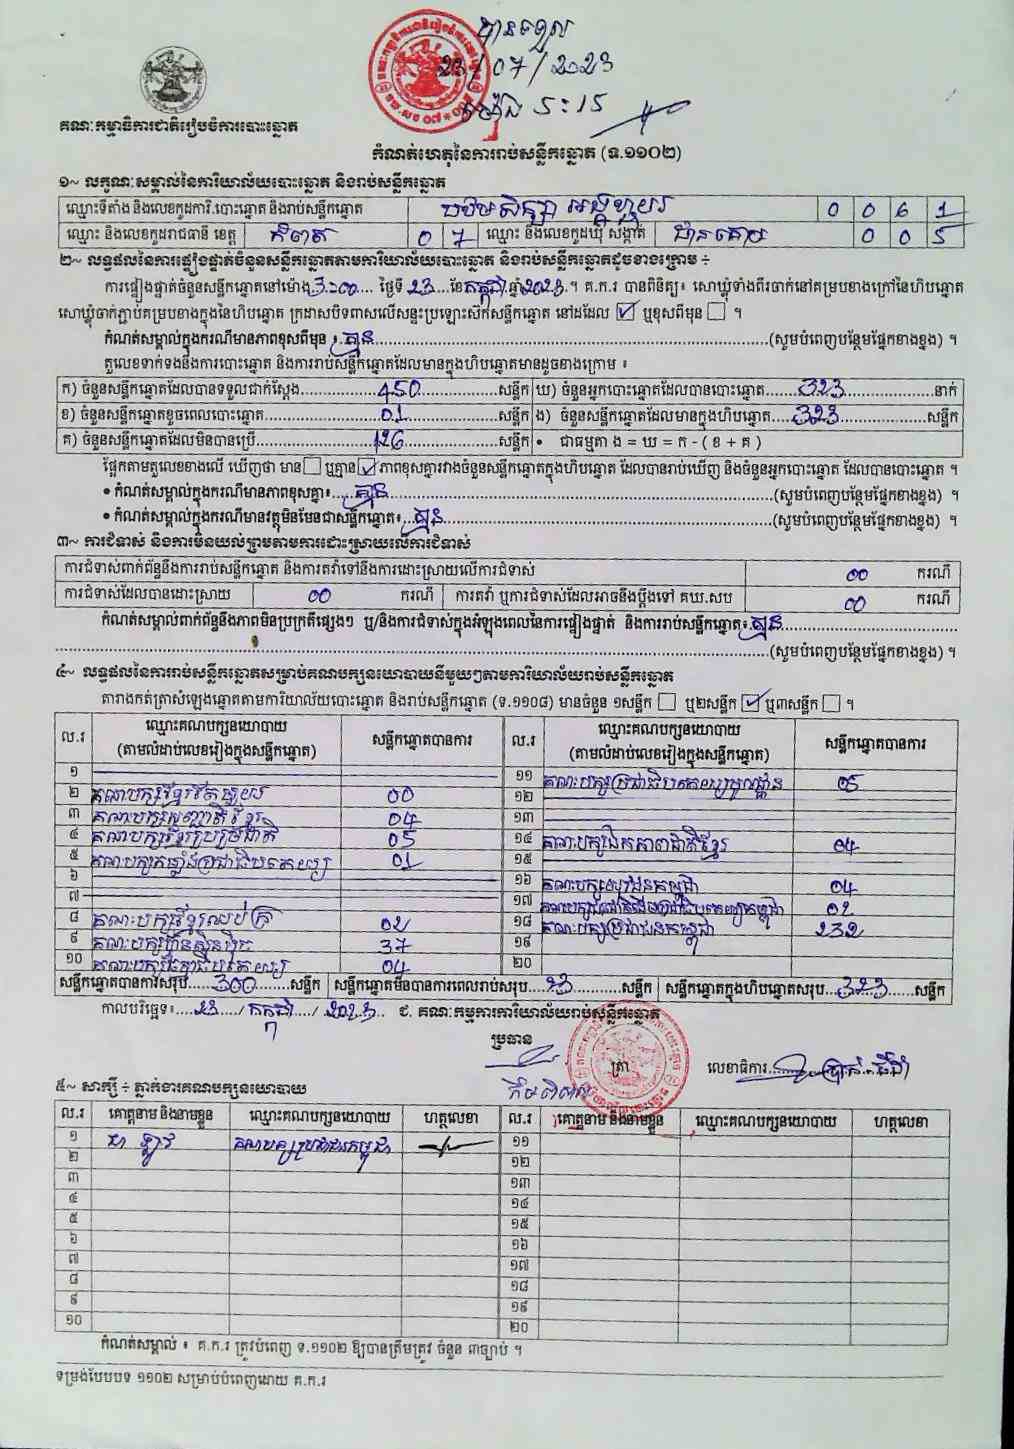 បានទទួល
23/07/2023
ម៉ោង 5:15
គណៈកម្មាធិការជាតិរៀបចំការបោះឆ្នោត
កំណត់ហេតុនៃការរាប់សន្លឹកឆ្នោត (ទ.១១០២)
១~ លក្ខណៈសម្គាល់នៃការិយាល័យបោះឆ្នោត និងរាប់សន្លឹកឆ្នោត
ឈ្មោះទីតាំង និងលេខកូដការិ.បោះឆ្នោត និងរាប់សន្លឹកឆ្នោត 0 0 6 1
ឈ្មោះ និងលេខកូដរាជធានី ខេត្ត កំពត 0 7 ឈ្មោះ និងលេខកូដឃុំ សង្កាត់ 0 0 5
២~ លទ្ធផលនៃការផ្ទៀងផ្ទាត់ចំនួនសន្លឹកឆ្នោតតាមការិយាល័យបោះឆ្នោត និងរាប់សន្លឹកឆ្នោតដូចខាងក្រោម ÷
ការផ្ទៀងផ្ទាត់ចំនួនសន្លឹកឆ្នោតនៅម៉ោង 3:00 ថ្ងៃទី 23 ខែ កក្កដា ឆ្នាំ 2023 ។ គ.ក.រ បានពិនិត្យ៖ សោឃ្លុំទាំងពីរចាក់នៅគម្របខាងក្រៅនៃហិបឆ្នោត
សោឃ្លុំចាក់ភ្ជាប់គម្របខាងក្នុងនៃហិបឆ្នោត ក្រដាសបិទពាសលើសន្ទះប្រឡោះស៊កសន្លឹកឆ្នោត នៅដដែល ☑ ឬខុសពីមុន ☐ ។
កំណត់សម្គាល់ក្នុងករណីមានភាពខុសពីមុន ៖ គ្មាន (សូមបំពេញបន្ថែមផ្នែកខាងខ្នង) ។
តួលេខទាក់ទងនឹងការបោះឆ្នោត និងការរាប់សន្លឹកឆ្នោតដែលមានក្នុងហិបឆ្នោតមានដូចខាងក្រោម ៖
ក) ចំនួនសន្លឹកឆ្នោតដែលបានទទួលជាក់ស្តែង 450 សន្លឹក ឃ) ចំនួនអ្នកបោះឆ្នោតដែលបានបោះឆ្នោត 323 នាក់
ខ) ចំនួនសន្លឹកឆ្នោតខូចពេលបោះឆ្នោត 01 សន្លឹក ង) ចំនួនសន្លឹកឆ្នោតដែលមានក្នុងហិបឆ្នោត 323 សន្លឹក
គ) ចំនួនសន្លឹកឆ្នោតដែលមិនបានប្រើ 126 សន្លឹក • ជាធម្មតា ង = ឃ = ក - ( ខ + គ )
ផ្អែកតាមតួលេខខាងលើ ឃើញថា មាន ☐ ឬគ្មាន ☑ ភាពខុសគ្នារវាងចំនួនសន្លឹកឆ្នោតក្នុងហិបឆ្នោត ដែលបានរាប់ឃើញ និងចំនួនអ្នកបោះឆ្នោត ដែលបានបោះឆ្នោត ។
• កំណត់សម្គាល់ក្នុងករណីមានភាពខុសគ្នា៖ គ្មាន (សូមបំពេញបន្ថែមផ្នែកខាងខ្នង) ។
• កំណត់សម្គាល់ក្នុងករណីមានវត្ថុមិនមែនជាសន្លឹកឆ្នោត៖ គ្មាន (សូមបំពេញបន្ថែមផ្នែកខាងខ្នង) ។
៣~ ការជំទាស់ និងការមិនយល់ព្រមតាមការដោះស្រាយលើការជំទាស់
ការជំទាស់ពាក់ព័ន្ធនឹងការរាប់សន្លឹកឆ្នោត និងការតវ៉ាទៅនឹងការដោះស្រាយលើការជំទាស់ 00 ករណី
ការជំទាស់ដែលបានដោះស្រាយ 00 ករណី ការតវ៉ា ឬការជំទាស់ដែលអាចនឹងប្តឹងទៅ គឃ.សប 00 ករណី
កំណត់សម្គាល់ពាក់ព័ន្ធនឹងភាពមិនប្រក្រតីផ្សេងៗ ឬ/និងការជំទាស់ក្នុងអំឡុងពេលនៃការផ្ទៀងផ្ទាត់ និងការរាប់សន្លឹកឆ្នោត៖ គ្មាន
(សូមបំពេញបន្ថែមផ្នែកខាងខ្នង) ។
៤~ លទ្ធផលនៃការរាប់សន្លឹកឆ្នោតសម្រាប់គណបក្សនយោបាយនីមួយៗតាមការិយាល័យរាប់សន្លឹកឆ្នោត
តារាងកត់ត្រាសំឡេងឆ្នោតតាមការិយាល័យបោះឆ្នោត និងរាប់សន្លឹកឆ្នោត (ទ.១១០៨) មានចំនួន ១សន្លឹក ☐ ឬ២សន្លឹក ☑ ឬ៣សន្លឹក ☐ ។
ល.រ ឈ្មោះគណបក្សនយោបាយ (តាមលំដាប់លេខរៀងក្នុងសន្លឹកឆ្នោត) សន្លឹកឆ្នោតបានការ ល.រ ឈ្មោះគណបក្សនយោបាយ (តាមលំដាប់លេខរៀងក្នុងសន្លឹកឆ្នោត) សន្លឹកឆ្នោតបានការ
១ ១១ គណបក្សប្រជាធិបតេយ្យមូលដ្ឋាន 05
២ 00 ១២
៣ គណបក្សសញ្ជាតិខ្មែរ 04 ១៣
៤ គណបក្សខ្មែររួបរួមជាតិ 05 ១៤ គណបក្សឯកភាពជាតិខ្មែរ 04
៥ គណបក្សកម្លាំងប្រជាធិបតេយ្យ 01 ១៥
៦ ១៦ គណបក្សយុវជនកម្ពុជា 04
៧ ១៧ 02
៨ 02 ១៨ គណបក្សប្រជាជនកម្ពុជា 232
៩ គណបក្សហ្វ៊ុនស៊ិនប៉ិច 37 ១៩
១០ 04 ២០
សន្លឹកឆ្នោតបានការសរុប 300 សន្លឹក សន្លឹកឆ្នោតមិនបានការពេលរាប់សរុប 23 សន្លឹក សន្លឹកឆ្នោតក្នុងហិបឆ្នោតសរុប 323 សន្លឹក
កាលបរិច្ឆេទ៖ 23 / កក្កដា / 2023 ជ. គណៈកម្មការការិយាល័យរាប់សន្លឹកឆ្នោត
ប្រធាន
ត្រា លេខាធិការ
៥~ សាក្សី ÷ ភ្នាក់ងារគណបក្សនយោបាយ
ល.រ គោត្តនាម និងនាមខ្លួន ឈ្មោះគណបក្សនយោបាយ ហត្ថលេខា ល.រ គោត្តនាម និងនាមខ្លួន ឈ្មោះគណបក្សនយោបាយ ហត្ថលេខា
១ គណបក្សប្រជាជនកម្ពុជា ១១
២ ១២
៣ ១៣
៤ ១៤
៥ ១៥
៦ ១៦
៧ ១៧
៨ ១៨
៩ ១៩
១០ ២០
កំណត់សម្គាល់ ៖ គ.ក.រ ត្រូវបំពេញ ទ.១១០២ ឱ្យបានត្រឹមត្រូវ ចំនួន ៣ច្បាប់ ។
ទម្រង់បែបបទ ១១០២ សម្រាប់បំពេញដោយ គ.ក.រ